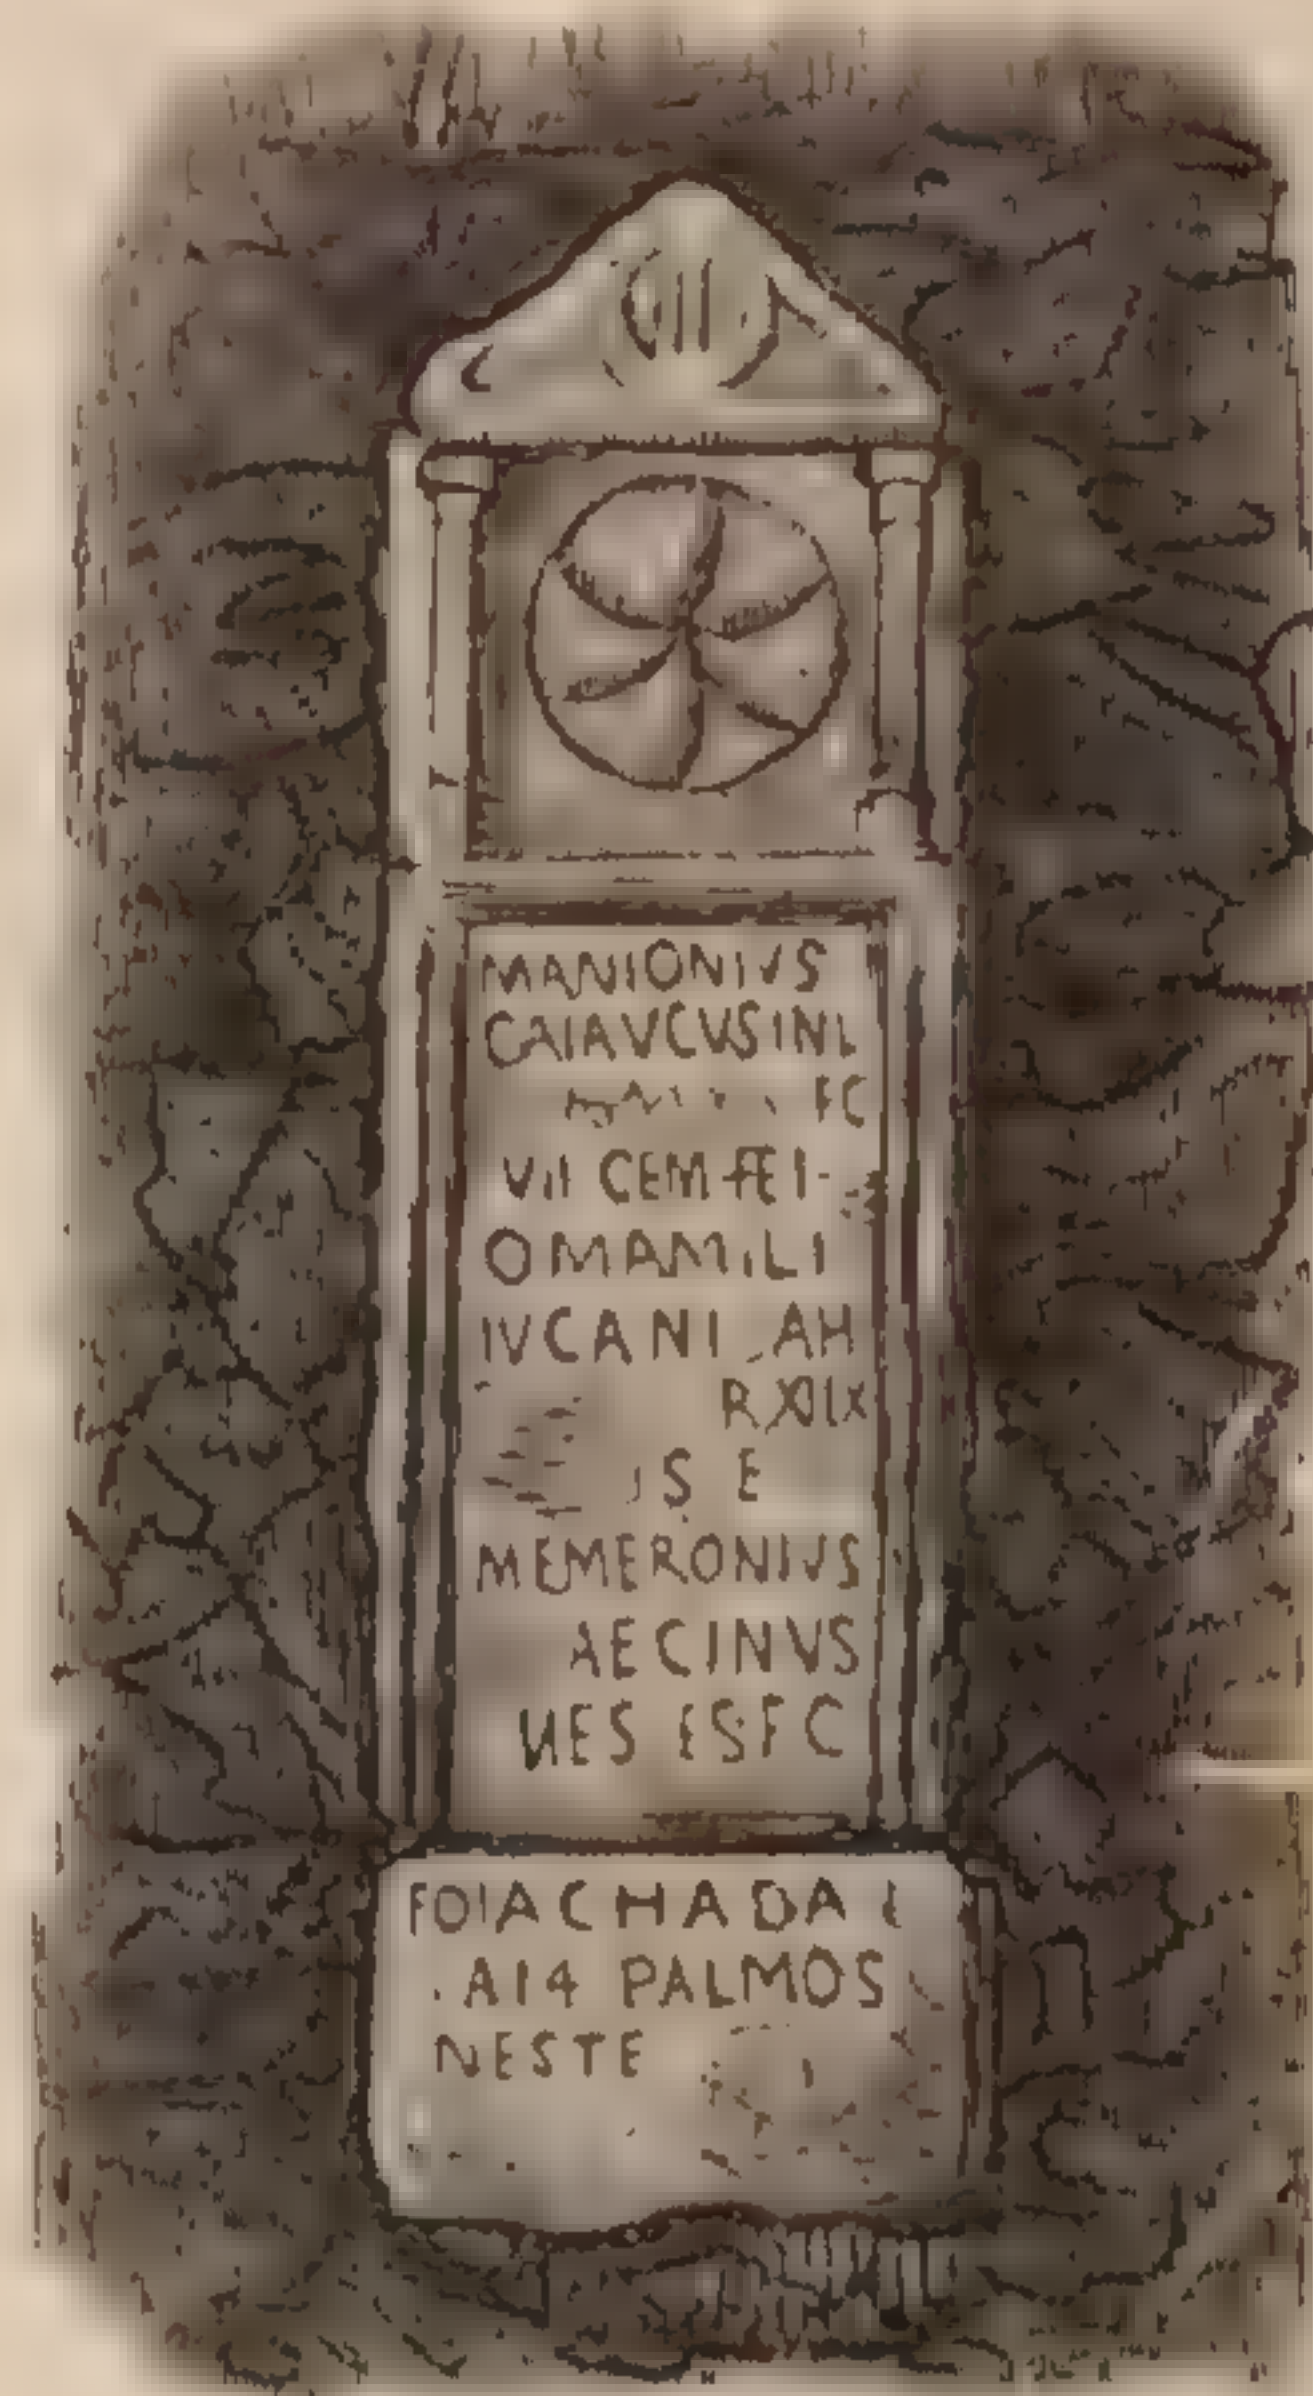 MANIONIVS
CAIAVCVSINL
FC
VII CEM FEI-
OMAMILI
IVCANI AH
RXIIX
S E
MEMERONIVS
AECINVS
VES ESFC
FOIACHADA E
AI4 PALMOS
NESTE